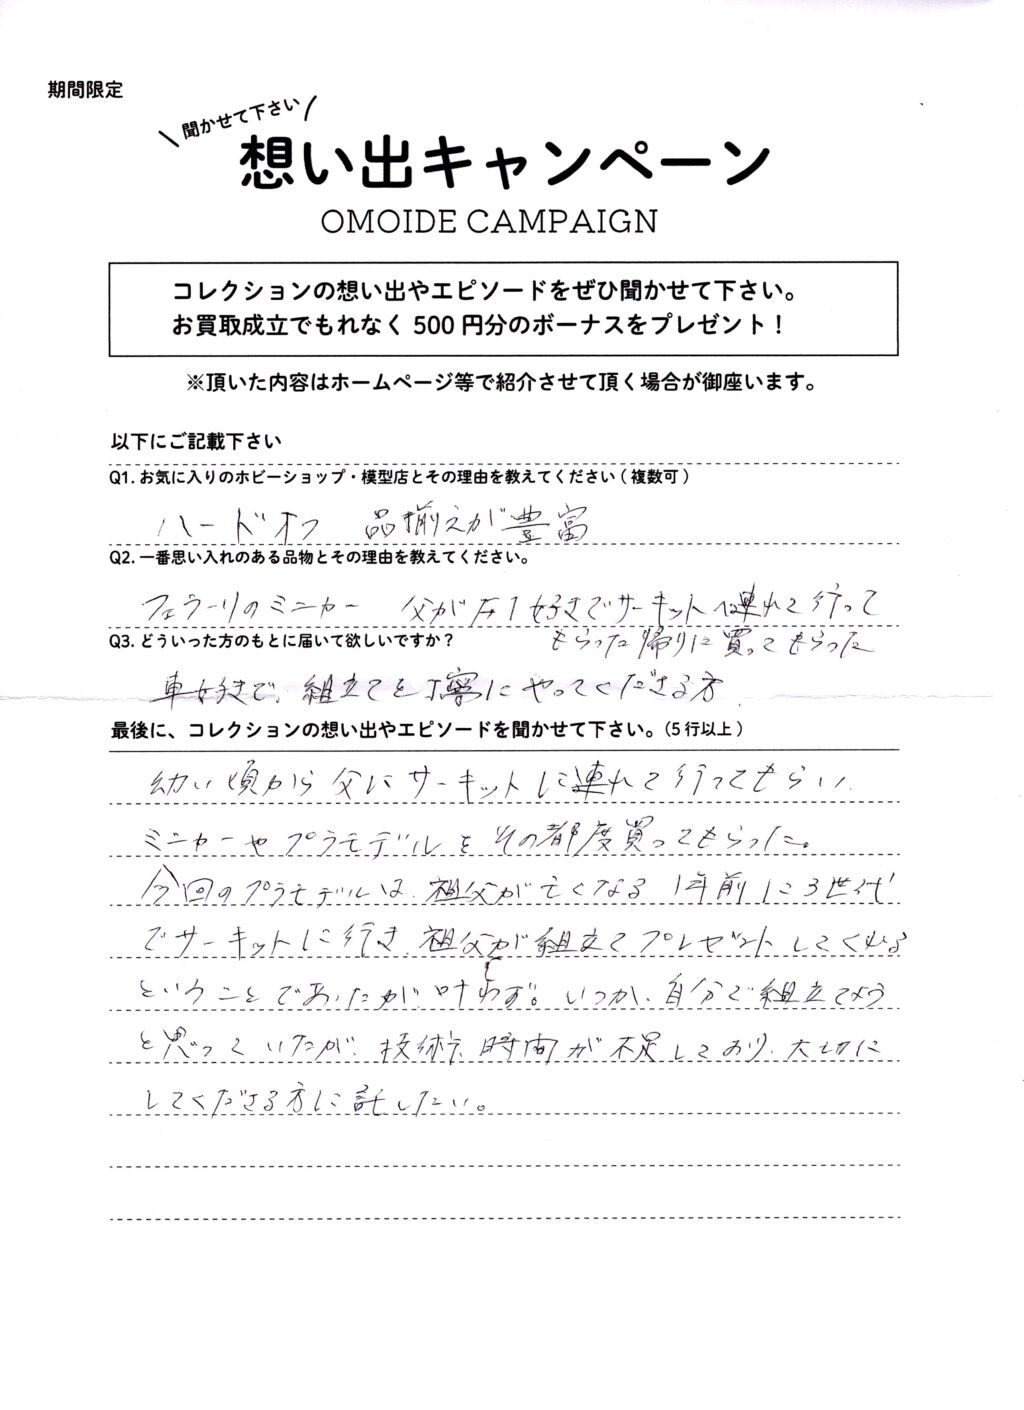 期間限定
聞かせて下さい
想い出キャンペーン
OMOIDE CAMPAIGN
コレクションの想い出やエピソードをぜひ聞かせて下さい。
お買取成立でもれなく 500 円分のボーナスをプレゼント！
※頂いた内容はホームページ等で紹介させて頂く場合が御座います。
以下にご記載下さい
Q1. お気に入りのホビーショップ・模型店とその理由を教えてください ( 複数可 )
ハードオフ 品揃えが豊富
Q2. 一番思い入れのある品物とその理由を教えてください。
フェラーリのミニカー 父がF1好きでサーキットへ連れて行って
もらった帰りに買ってもらった
Q3. どういった方のもとに届いて欲しいですか？
車好きで、組立てを丁寧にやってくださる方
最後に、コレクションの想い出やエピソードを聞かせて下さい。(５行以上)
幼い頃から父にサーキットに連れて行ってもらい、
ミニカーやプラモデルをその都度買ってもらった。
今回のプラモデルは、祖父が亡くなる1年前に3世代
でサーキットに行き、祖父が組立てプレゼントしてくれる
ということであったが、叶わず。いつか、自分で組立てよう
と思っていたが、技術、時間が不足しており、大切に
してくださる方に託したい。